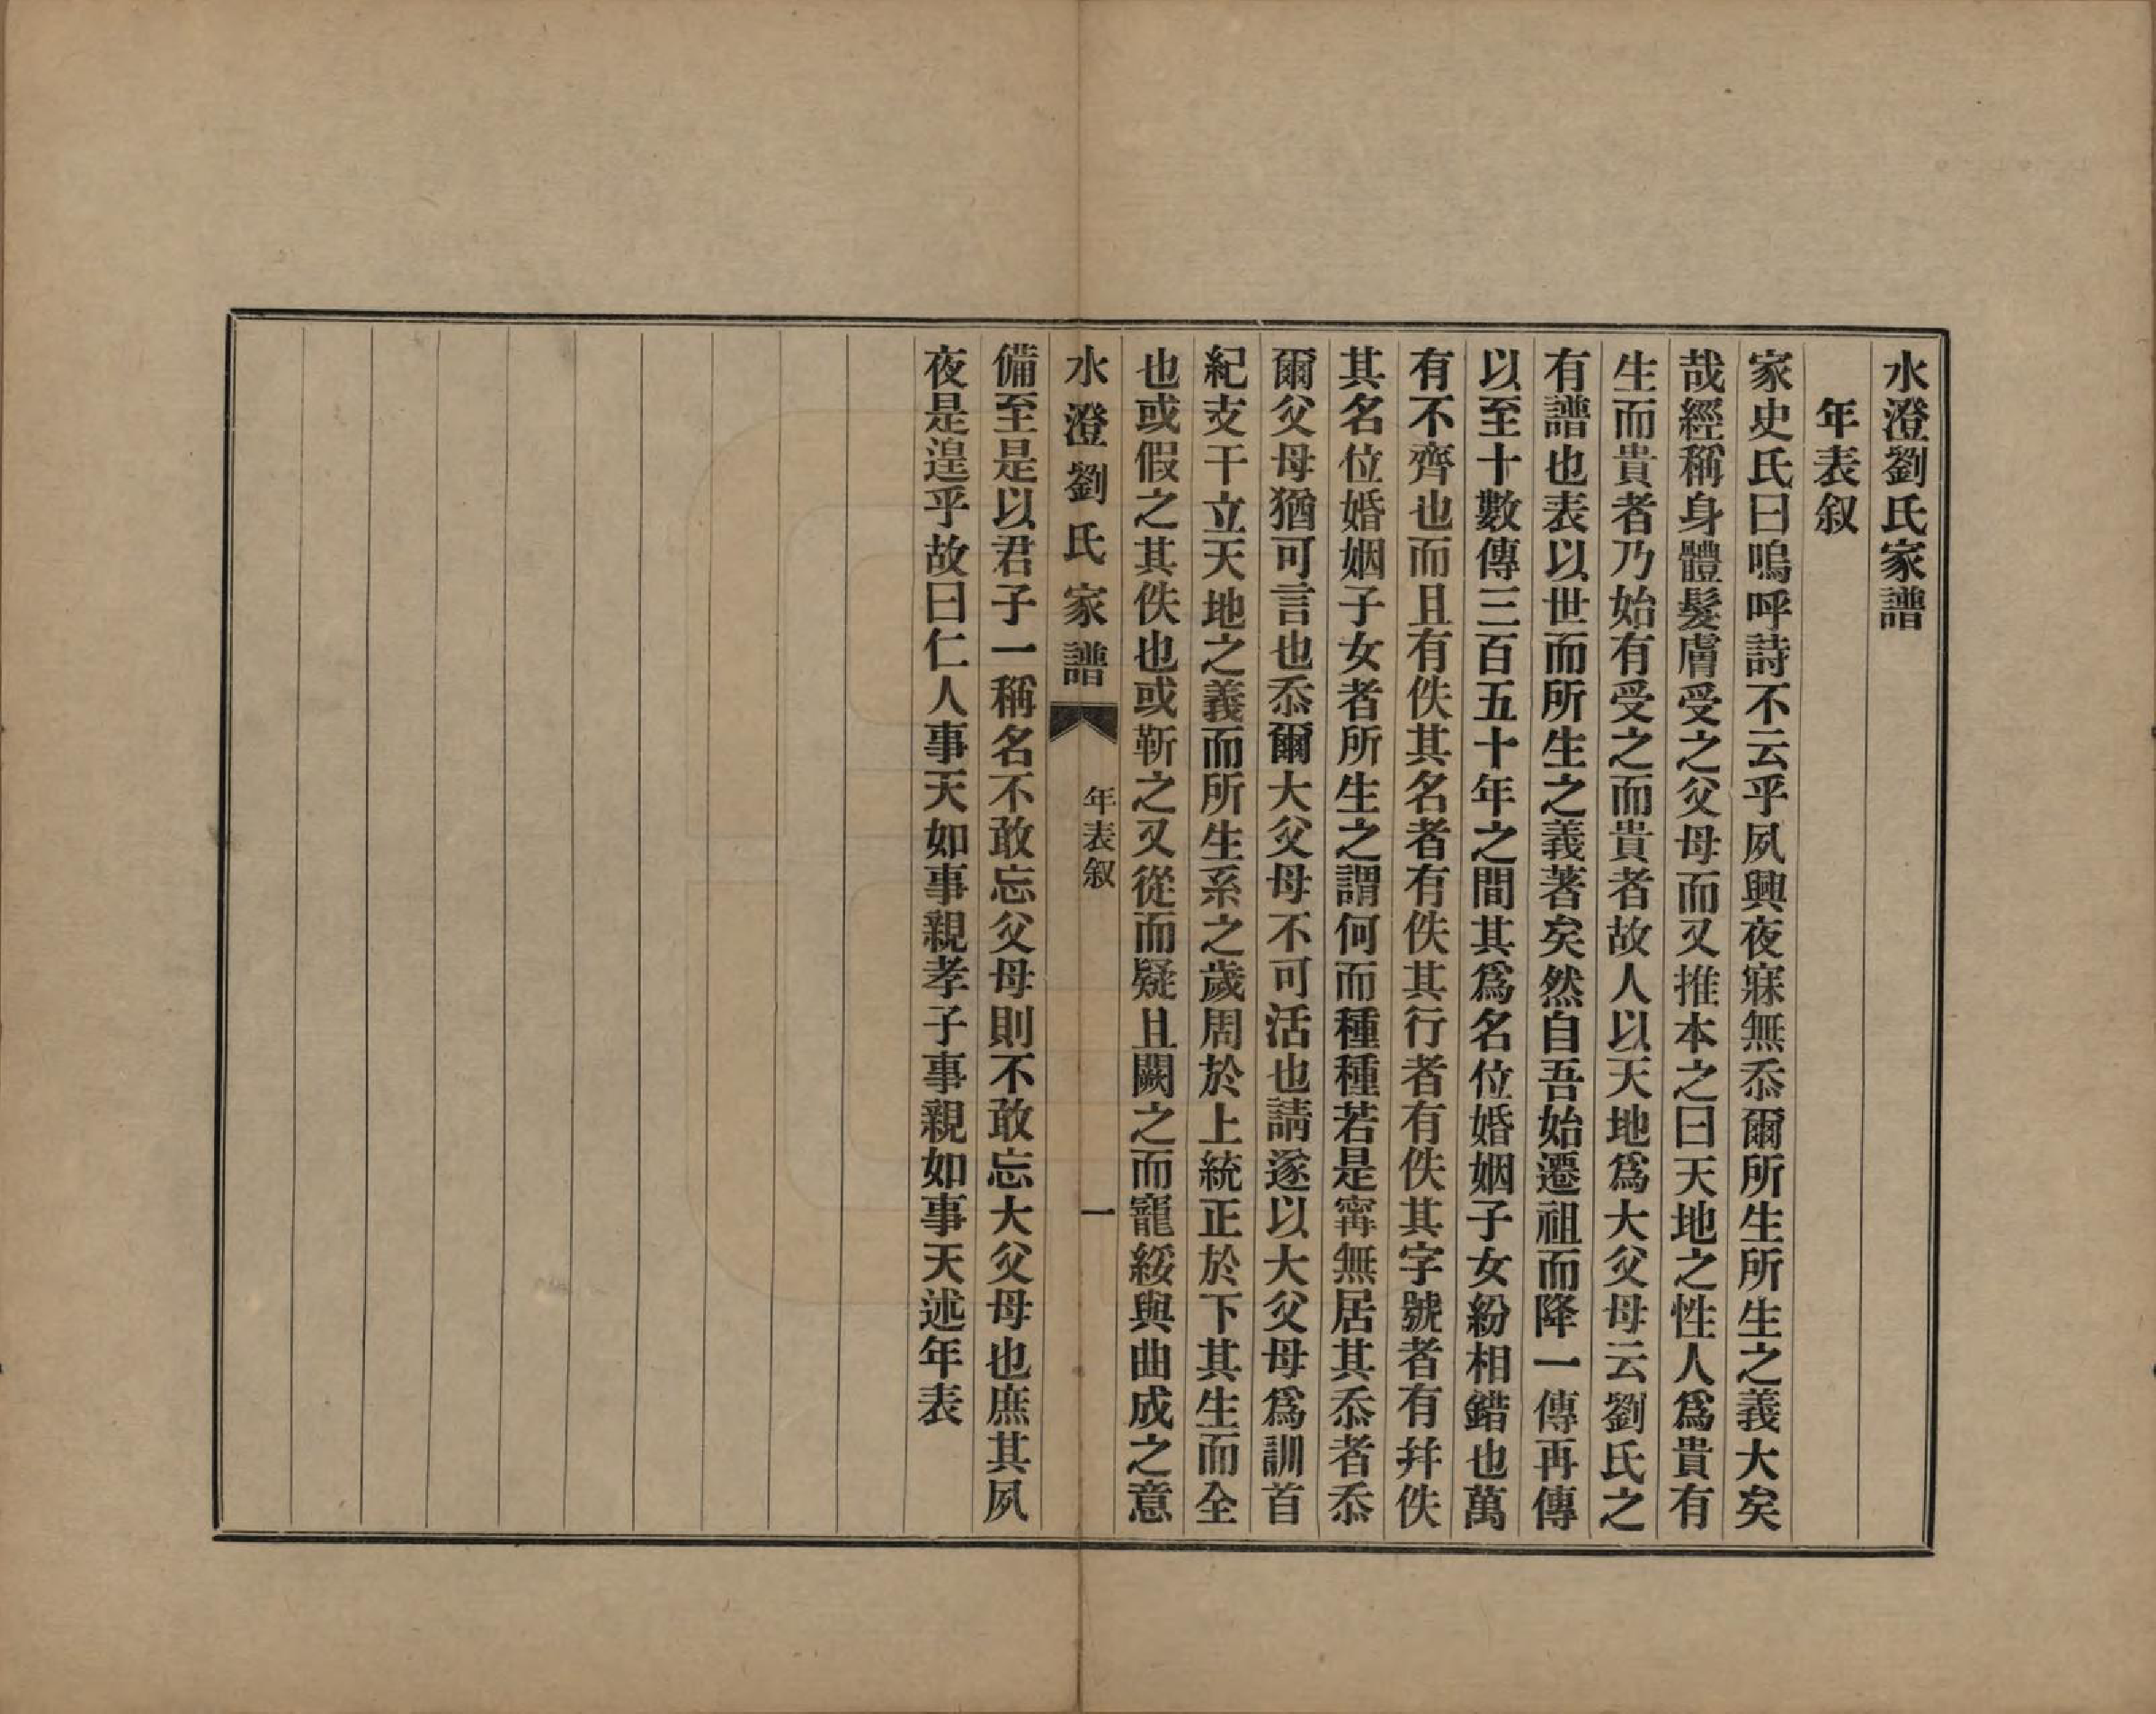 水澄劉氏家譜
年表叙
家史氏曰嗚呼詩不云乎夙興夜寐無忝爾所生所生之義大矣
哉經稱身體髮膚受之父母而又推本之曰天地之性人爲貴有
生而貴者乃始有受之而貴者故人以天地爲大父母云劉氏之
有譜也表以世而所生之義著矣然自吾始遷祖而降一傳再傳
以至十數傳三百五十年之間其爲名位婚姻子女紛相錯也萬
有不齊也而且有佚其名者有佚其行者有佚其字號者有幷佚
其名位婚姻子女者所生之謂何而種種若是甯無居其忝者忝
爾父母猶可言也忝爾大父母不可活也請遂以大父母爲訓首
紀支干立天地之義而所生系之歲周於上統正於下其生而全
也或假之其佚也或靳之又從而疑且闕之而寵綏與曲成之意
水澄劉氏家譜
年表叙
一
備至是以君子一稱名不敢忘父母則不敢忘大父母也庶其夙
夜是遑乎故曰仁人事天如事親孝子事親如事天述年表